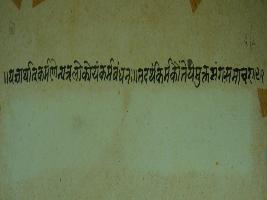 ॥यज्ञार्थात्कर्मणोन्यत्रलोकोयंकर्मबंधनः॥तदर्थंकर्मकौंतेयमुक्तसंगःसमाचर॥९॥